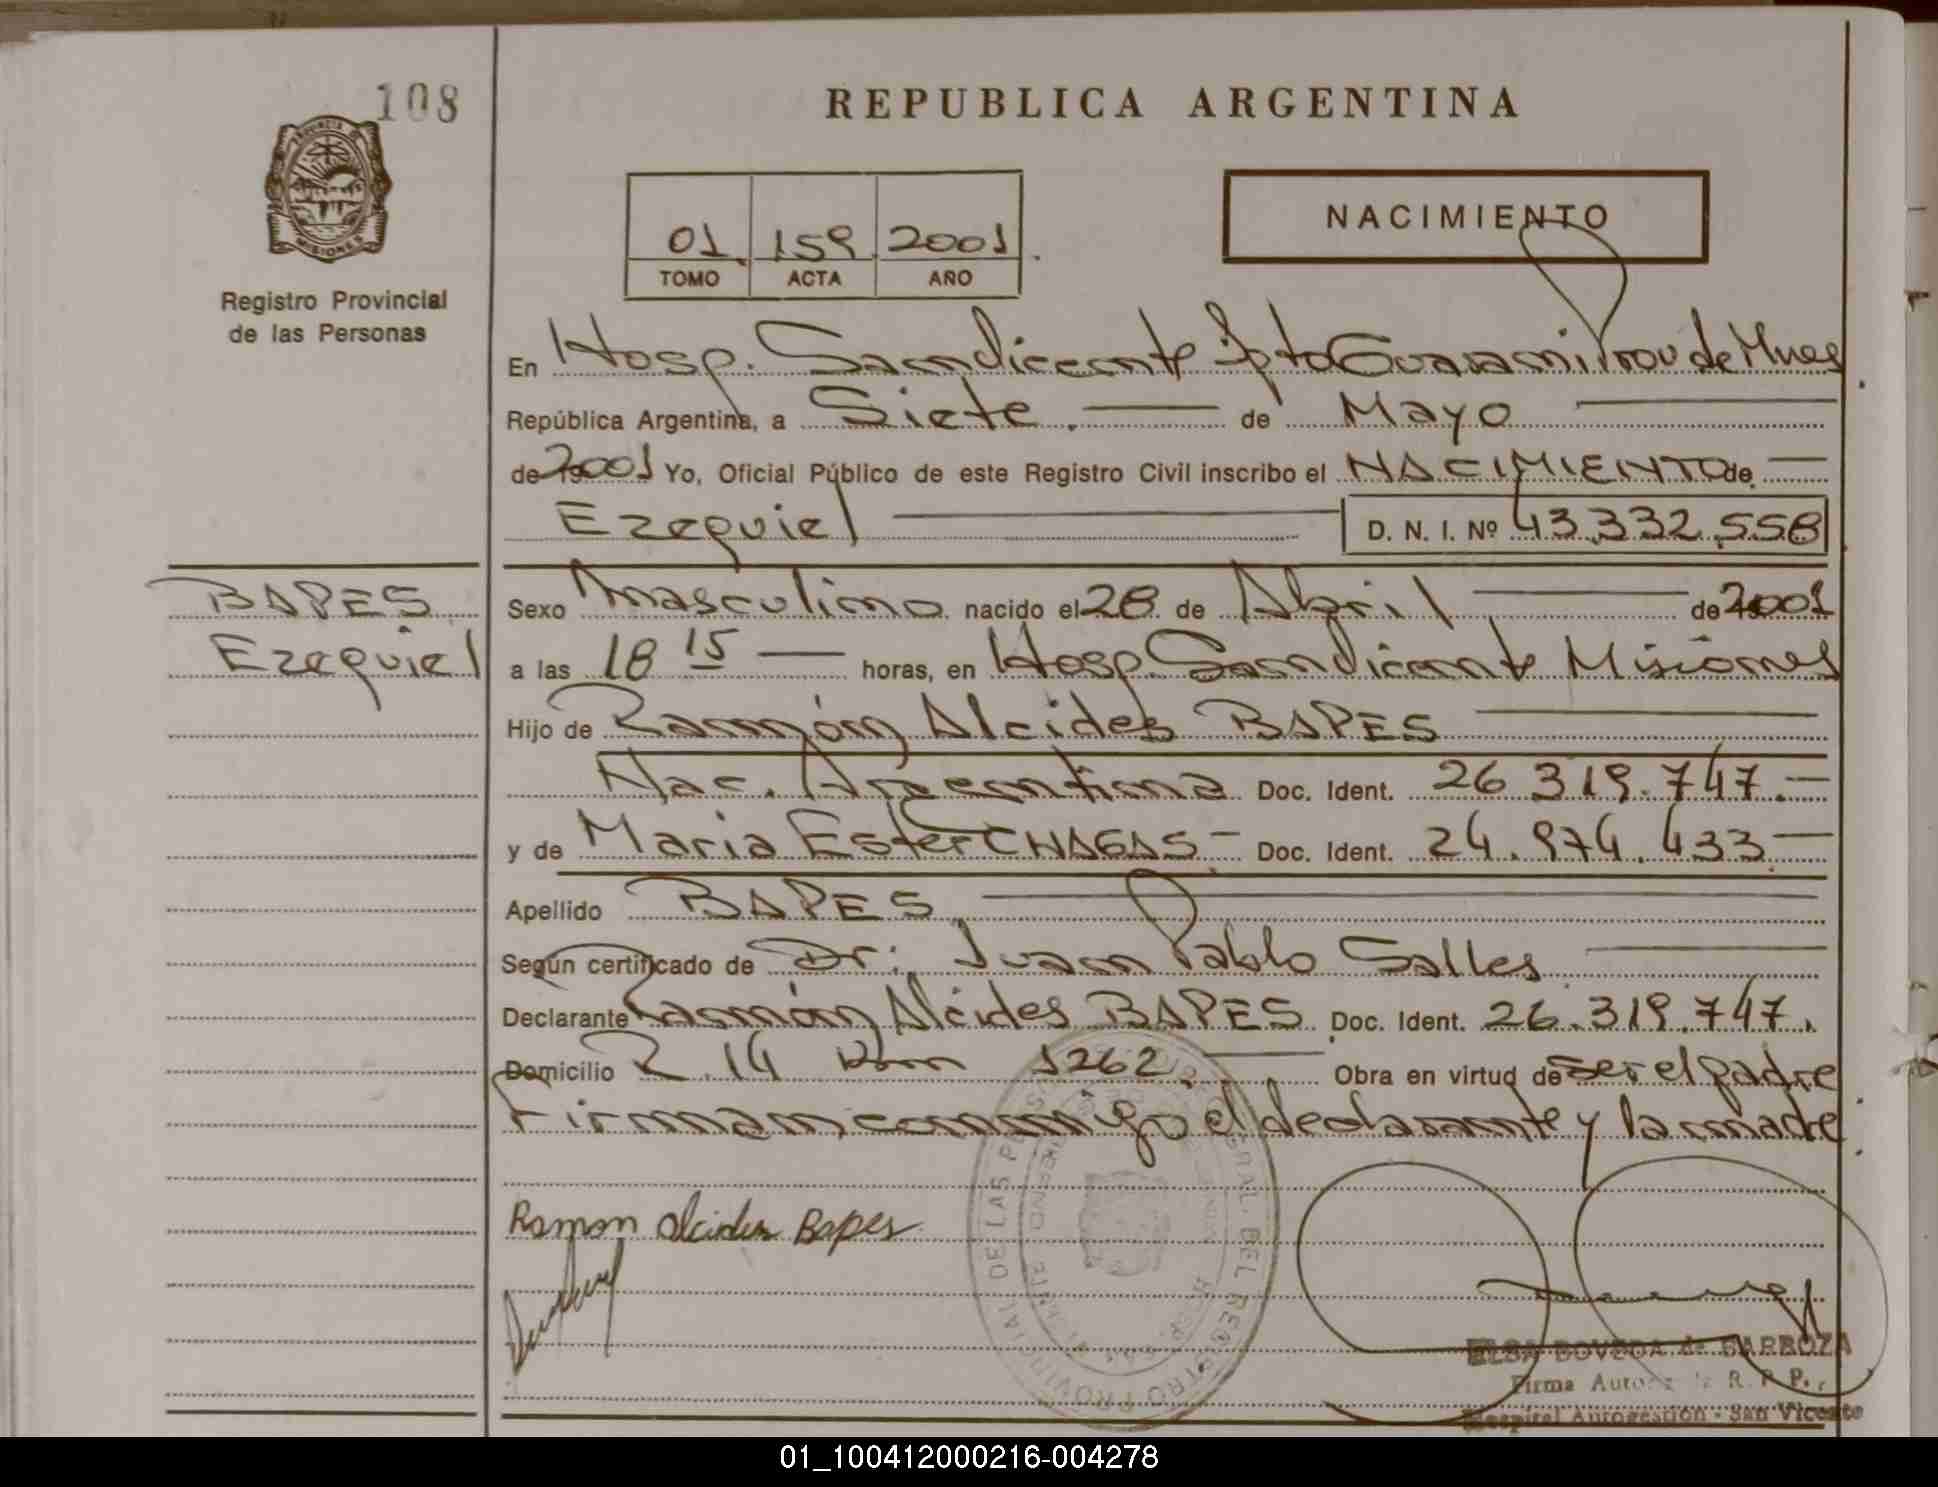 108
REPUBLICA ARGENTINA
PROVINCIA DE
MISIONES
Registro Provincial
de las Personas
01 159 2001
TOMO ACTA AÑO
NACIMIENTO
En Hosp. San Vicente Dpto Guaraní Prov de Mnes
República Argentina, a Siete. de Mayo
de 2001 Yo, Oficial Público de este Registro Civil inscribo el NACIMIENTO de
Ezequiel D. N. I. Nº 43.332.558
BAPES
Ezequiel
Sexo Masculino nacido el 28 de Abril de 2001
a las 18 15 horas, en Hosp. San Vicente Misiones
Hijo de Ramón Alcides BAPES
Nac. Argentina Doc. Ident. 26.319.747.
y de Maria Ester CHAGAS Doc. Ident. 24.974.433
Apellido BAPES
Según certificado de Dr: Juan Pablo Salles
Declarante Ramón Alcides BAPES Doc. Ident. 26.319.747.
Domicilio R. 14 Km 1262. Obra en virtud de ser el padre
Firman conmigo el declarante y la madre
Ramon Alcides Bapes
ELSA BOVEDA de BARBOZA
Firma Autoriz R. P. P.
Hospital Autogestión - San Vicente
01_100412000216-004278